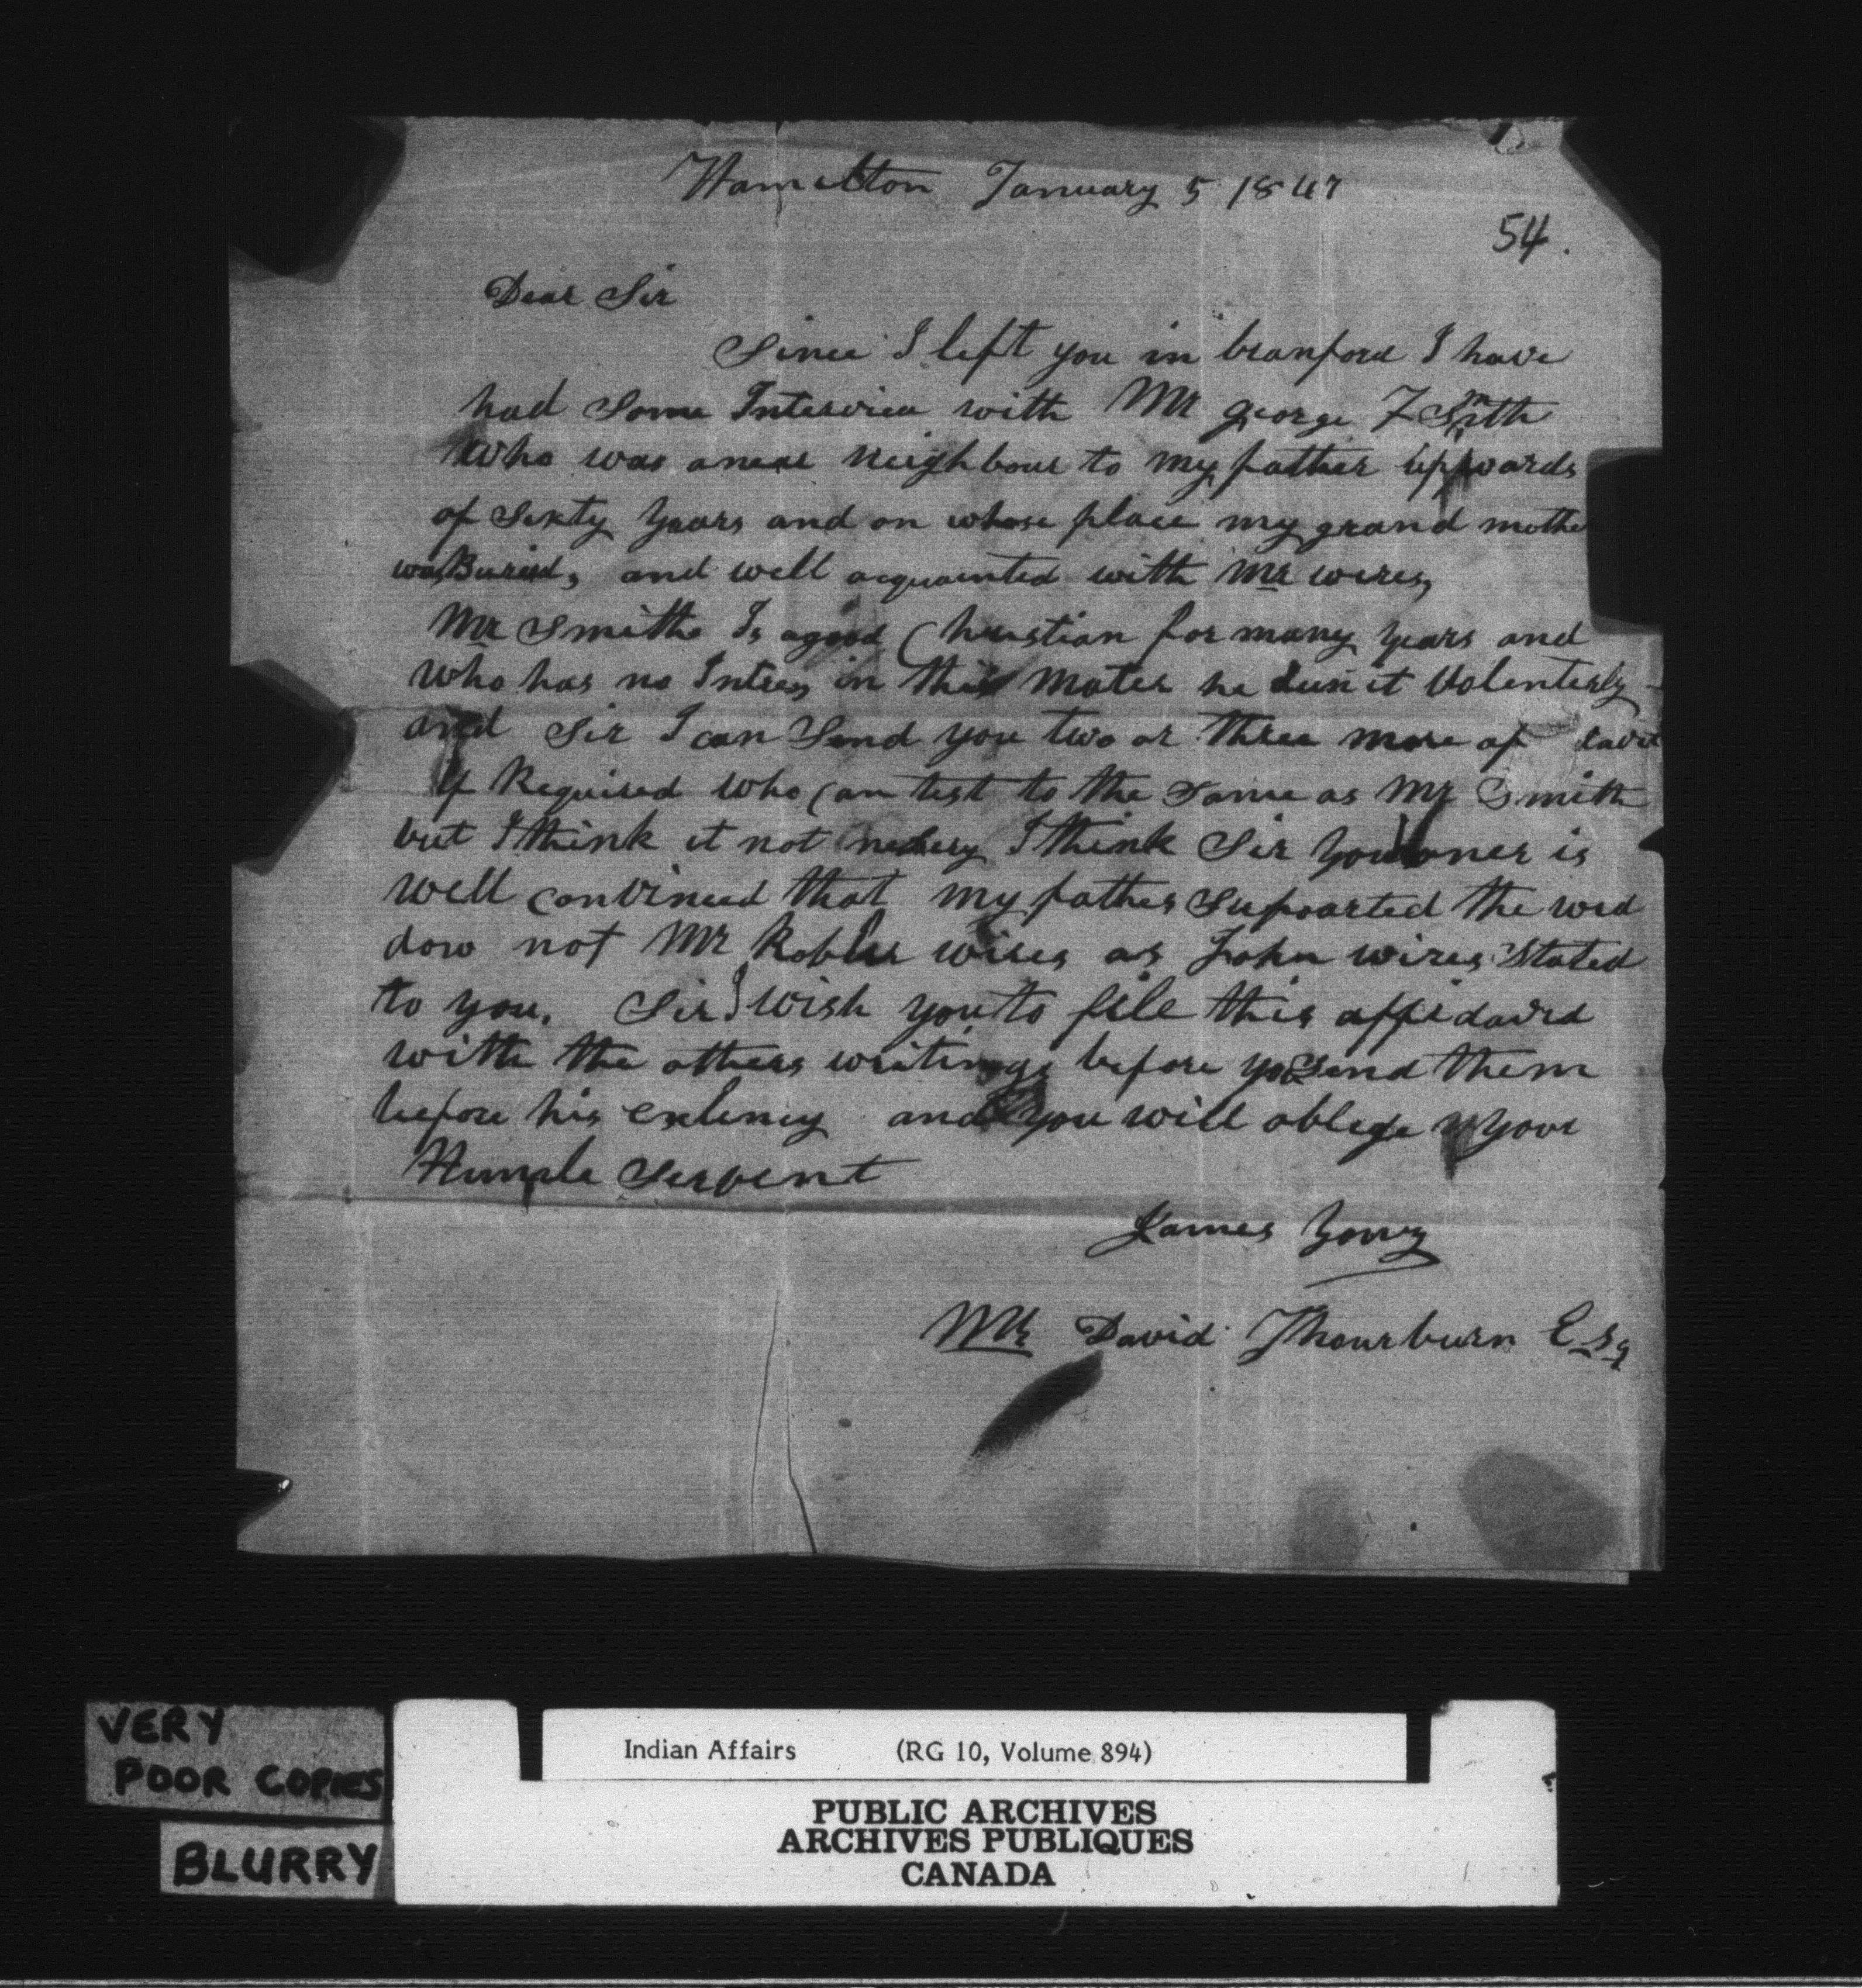 Hamelton January 5 1847
54.
Dear Sir
Since I left you in branford I have
had Some Interview with Mr george F Smith
Who was anear Neighbour to my father uppwards
of Sixty years and on whose place my grand mother
was Buried, and well acquainted with Mr wires,
Mr Smithe Is agood Christian for many years and
Who has no Intres in this Mater he dun it Volenterly
and Sir I can Send you two or three more of davit
If Required who can test to the Same as Mr Smith
but I think it not I think Sir your oner is
Well convinced that my father Supoarted the wid
dow not Mr wires as John wires Stated
to you. Sir I wish you to file this affedavid
with the others writings before you Send them
before his exlency and you will oblege your
Humple Servent
James Young
Mr David Thourburn Esq
VERY
POOR COPIES
BLURRY
Indian Affairs (RG 10, Volume 894)
PUBLIC ARCHIVES
ARCHIVES PUBLIQUES
CANADA